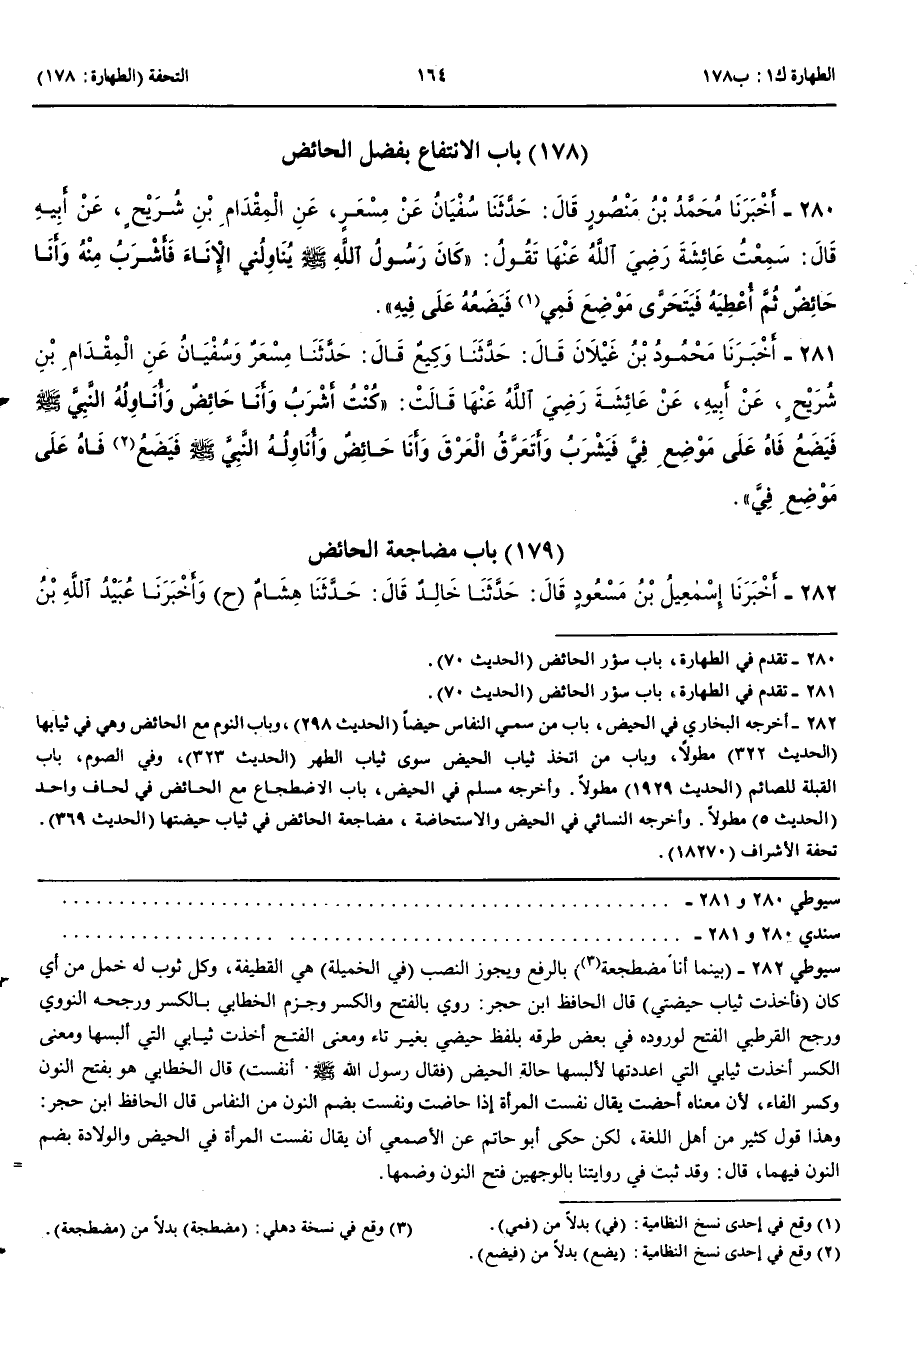 الطهارة ك١: ب١٧٨ ١٦٤ التحفة (الطهارة: ١٧٨)
(١٧٨) باب الانتفاع بفضل الحائض
٢٨٠ ـ أَخْبَرَنَا مُحَمَّدُ بْنُ مَنْصُورٍ قَالَ: حَدَّثَنَا سُفْيَانُ عَنْ مِسْعَرٍ، عَنِ الْمِقْدَامِ بْنِ شُرَيْحٍ، عَنْ أَبِيهِ
قَالَ: سَمِعْتُ عَائِشَةَ رَضِيَ ٱللَّهُ عَنْهَا تَقُولُ: «كَانَ رَسُولُ ٱللَّهِ ﷺ يُنَاوِلُنِي الْإِنَاءَ فَأَشْرَبُ مِنْهُ وَأَنَا
حَائِضٌ ثُمَّ أُعْطِيَهُ فَيَتَحَرَّى مَوْضِعَ فَمِي(١) فَيَضَعُهُ عَلَى فِيهِ».
٢٨١ ـ أَخْبَرَنَا مَحْمُودُ بْنُ غَيْلَانَ قَالَ: حَدَّثَنَا وَكِيعٌ قَالَ: حَدَّثَنَا مِسْعَرٌ وَسُفْيَانُ عَنِ الْمِقْدَامِ بْنِ
شُرَيْحٍ، عَنْ أَبِيهِ، عَنْ عَائِشَةَ رَضِيَ ٱللَّهُ عَنْهَا قَالَتْ: «كُنْتُ أَشْرَبُ وَأَنَا حَائِضٌ وَأُنَاوِلُهُ النَّبِيَّ ﷺ
فَيَضَعُ فَاهُ عَلَى مَوْضِعِ فِيَّ فَيَشْرَبُ وَأَتَعَرَّقُ الْعَرْقَ وَأَنَا حَائِضٌ وَأُنَاوِلُهُ النَّبِيَّ ﷺ فَيَضَعُ(٢) فَاهُ عَلَى
مَوْضِعِ فِيَّ».
(١٧٩) باب مضاجعة الحائض
٢٨٢ ـ أَخْبَرَنَا إِسْمٰعِيلُ بْنُ مَسْعُودٍ قَالَ: حَدَّثَنَا خَالِدٌ قَالَ: حَدَّثَنَا هِشَامٌ (ح) وَأَخْبَرَنَا عُبَيْدُ ٱللَّهِ بْنُ
٢٨٠ ـ تقدم في الطهارة، باب سؤر الحائض (الحديث ٧٠).
٢٨١ ـ تقدم في الطهارة، باب سؤر الحائض (الحديث ٧٠).
٢٨٢ ـ أخرجه البخاري في الحيض، باب من سمي النفاس حيضاً (الحديث ٢٩٨)، وباب النوم مع الحائض وهي في ثيابها
(الحديث ٣٢٢) مطولاً، وباب من اتخذ ثياب الحيض سوى ثياب الطهر (الحديث ٣٢٣)، وفي الصوم، باب
القبلة للصائم (الحديث ١٩٢٩) مطولاً. وأخرجه مسلم في الحيض، باب الاضطجاع مع الحائض في لحاف واحد
(الحديث ٥) مطولاً. وأخرجه النسائي في الحيض والاستحاضة، مضاجعة الحائض في ثياب حيضتها (الحديث ٣٦٩).
تحفة الأشراف (١٨٢٧٠).
سيوطي ٢٨٠ و ٢٨١ ـ ...............................................
سندي ٢٨٠ و ٢٨١ ـ ...............................................
سيوطي ٢٨٢ ـ (بينما أنا مضطجعة(٣)) بالرفع ويجوز النصب (في الخميلة) هي القطيفة، وكل ثوب له خمل من أي
كان (فأخذت ثياب حيضتي) قال الحافظ ابن حجر: روي بالفتح والكسر وجزم الخطابي بالكسر ورجحه النووي
ورجح القرطبي الفتح لوروده في بعض طرقه بلفظ حيضي بغير تاء ومعنى الفتح أخذت ثيابي التي ألبسها ومعنى
الكسر أخذت ثيابي التي اعددتها لألبسها حالة الحيض (فقال رسول الله ﷺ أنفست) قال الخطابي هو بفتح النون
وكسر الفاء، لأن معناه أحضت يقال نفست المرأة إذا حاضت ونفست بضم النون من النفاس قال الحافظ ابن حجر:
وهذا قول كثير من أهل اللغة، لكن حكى أبو حاتم عن الأصمعي أن يقال نفست المرأة في الحيض والولادة بضم
النون فيهما، قال: وقد ثبت في روايتنا بالوجهين فتح النون وضمها.
(١) وقع في إحدى نسخ النظامية: (في) بدلاً من (فمي). (٣) وقع في نسخة دهلي: (مضطجة) بدلاً من (مضطجعة).
(٢) وقع في إحدى نسخ النظامية: (يضع) بدلاً من (فيضع).